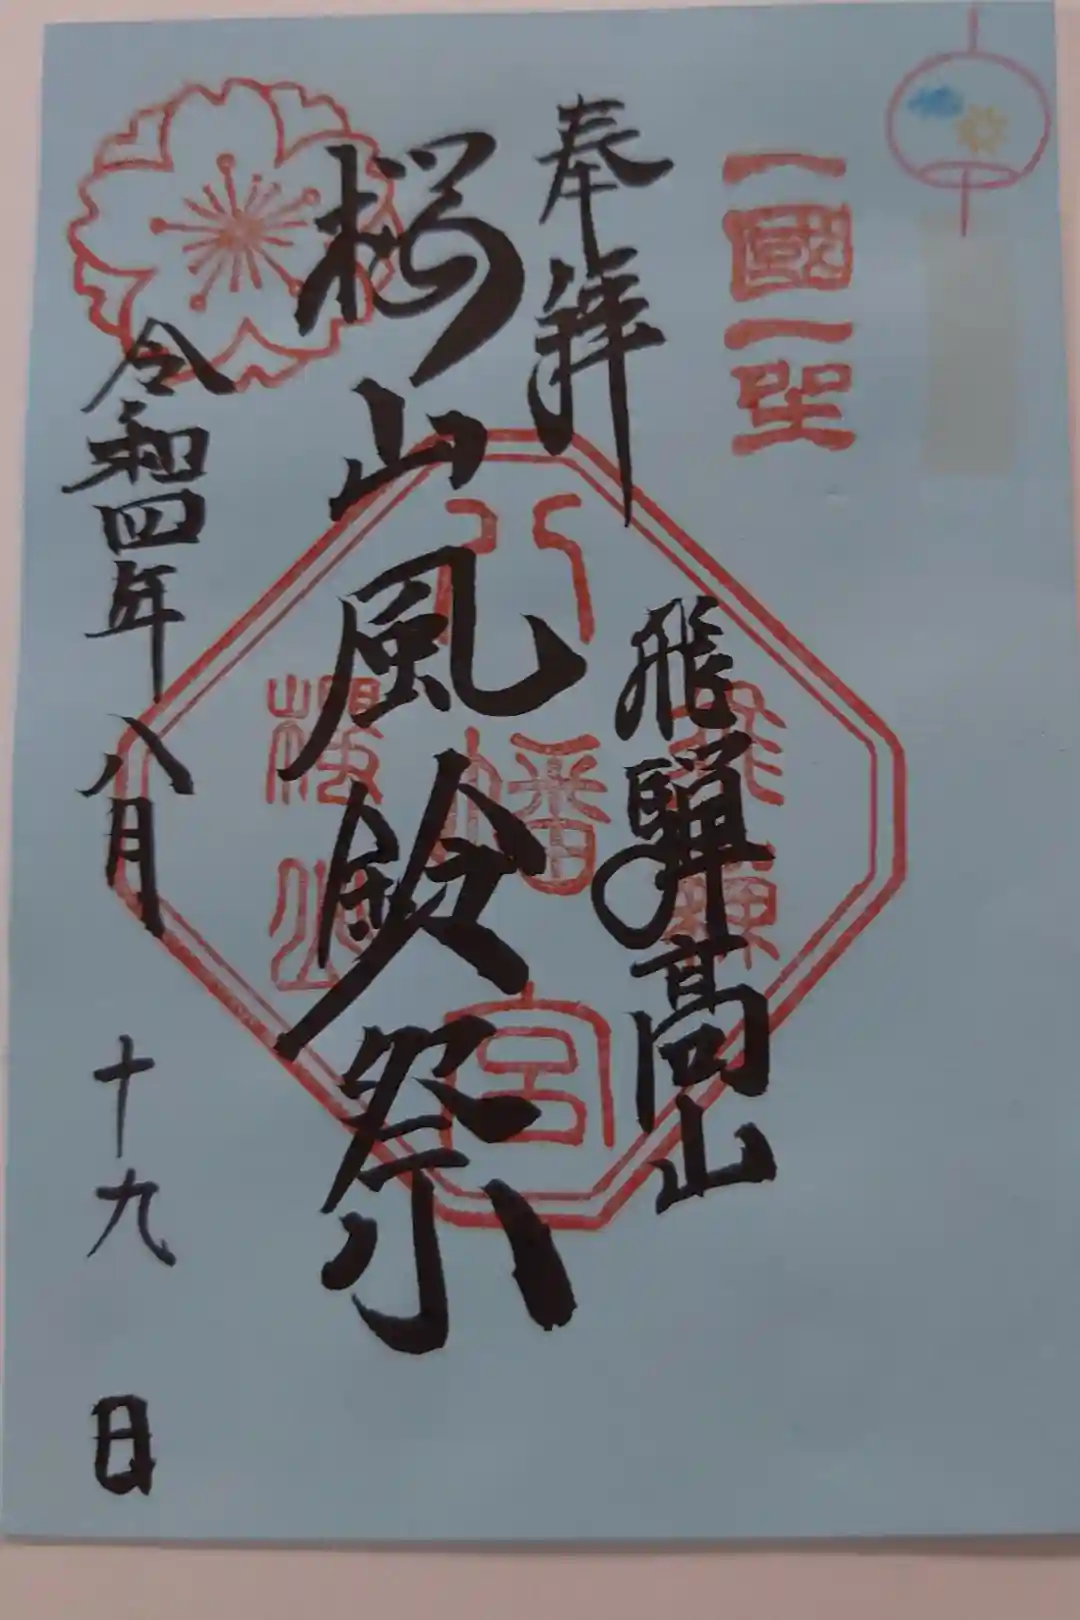 一國一社
奉拜
飛驒高山
桜山風鈴祭
令和四年八月十九日
飛騨
八幡宮
櫻山